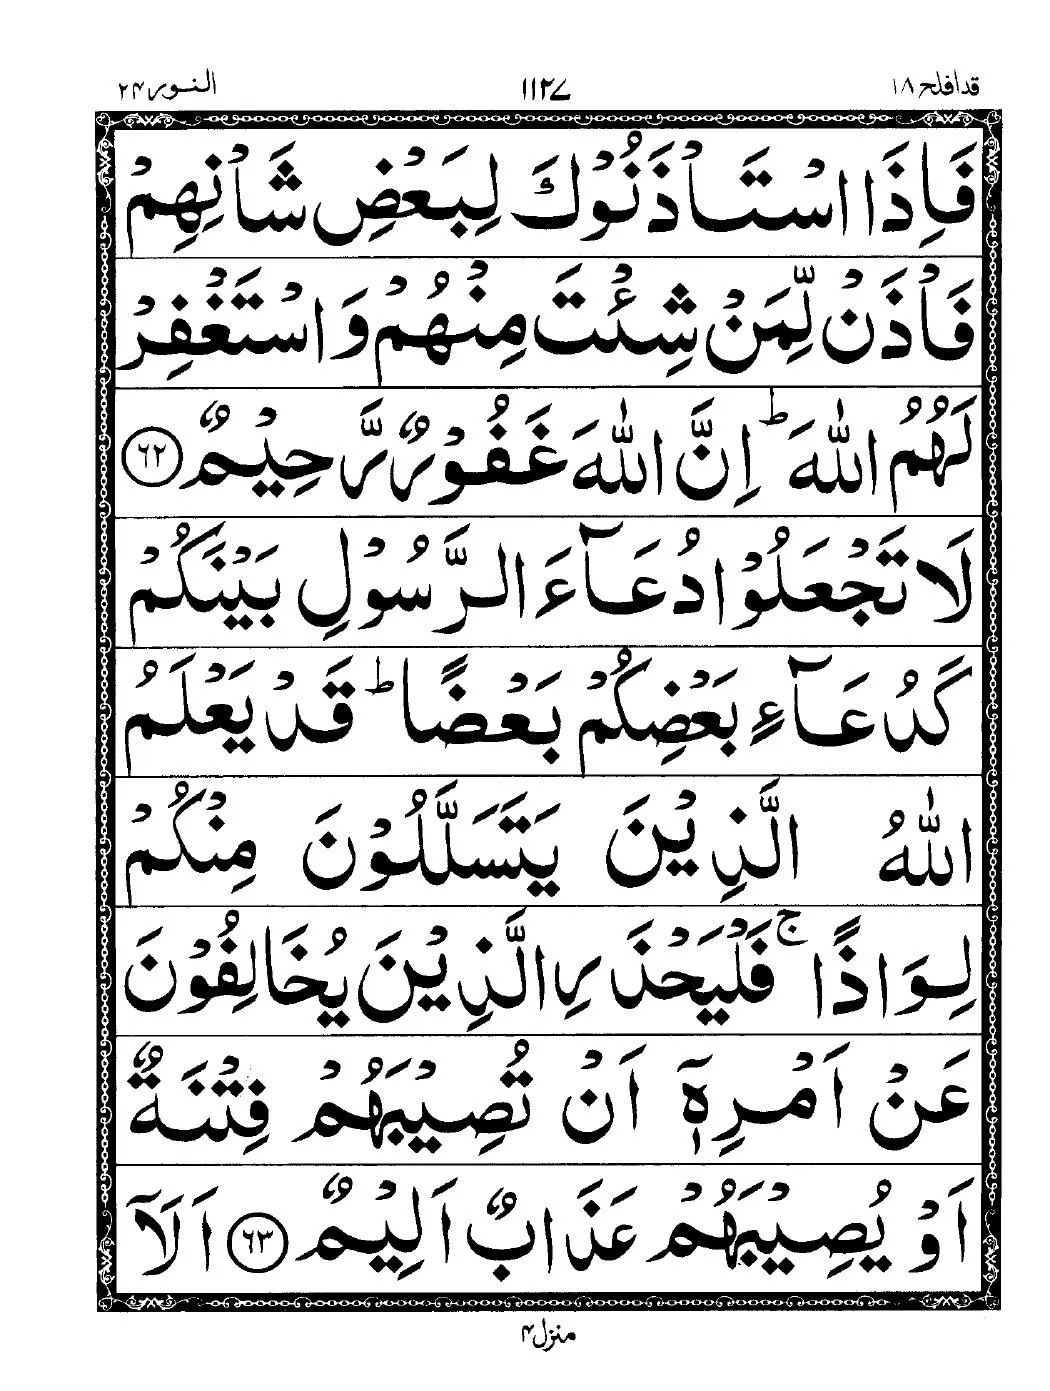 قد افلح ١٨
١١٢٧
النور ٢٤
فَاِذَا اسْتَاْذَنُوْكَ لِبَعْضِ شَاْنِهِمْ
فَاْذَنْ لِّمَنْ شِئْتَ مِنْهُمْ وَاسْتَغْفِرْ
لَهُمُ اللّٰهَ ؕ اِنَّ اللّٰهَ غَفُوْرٌ رَّحِيْمٌ ﴿٦٢﴾
لَا تَجْعَلُوْا دُعَآءَ الرَّسُوْلِ بَيْنَكُمْ
كَدُعَآءِ بَعْضِكُمْ بَعْضًا ؕ قَدْ يَعْلَمُ
اللّٰهُ الَّذِيْنَ يَتَسَلَّلُوْنَ مِنْكُمْ
لِوَاذًا ۚ فَلْيَحْذَرِ الَّذِيْنَ يُخَالِفُوْنَ
عَنْ اَمْرِهٖٓ اَنْ تُصِيْبَهُمْ فِتْنَةٌ
اَوْ يُصِيْبَهُمْ عَذَابٌ اَلِيْمٌ ﴿٦٣﴾ اَلَآ
منزل ۴